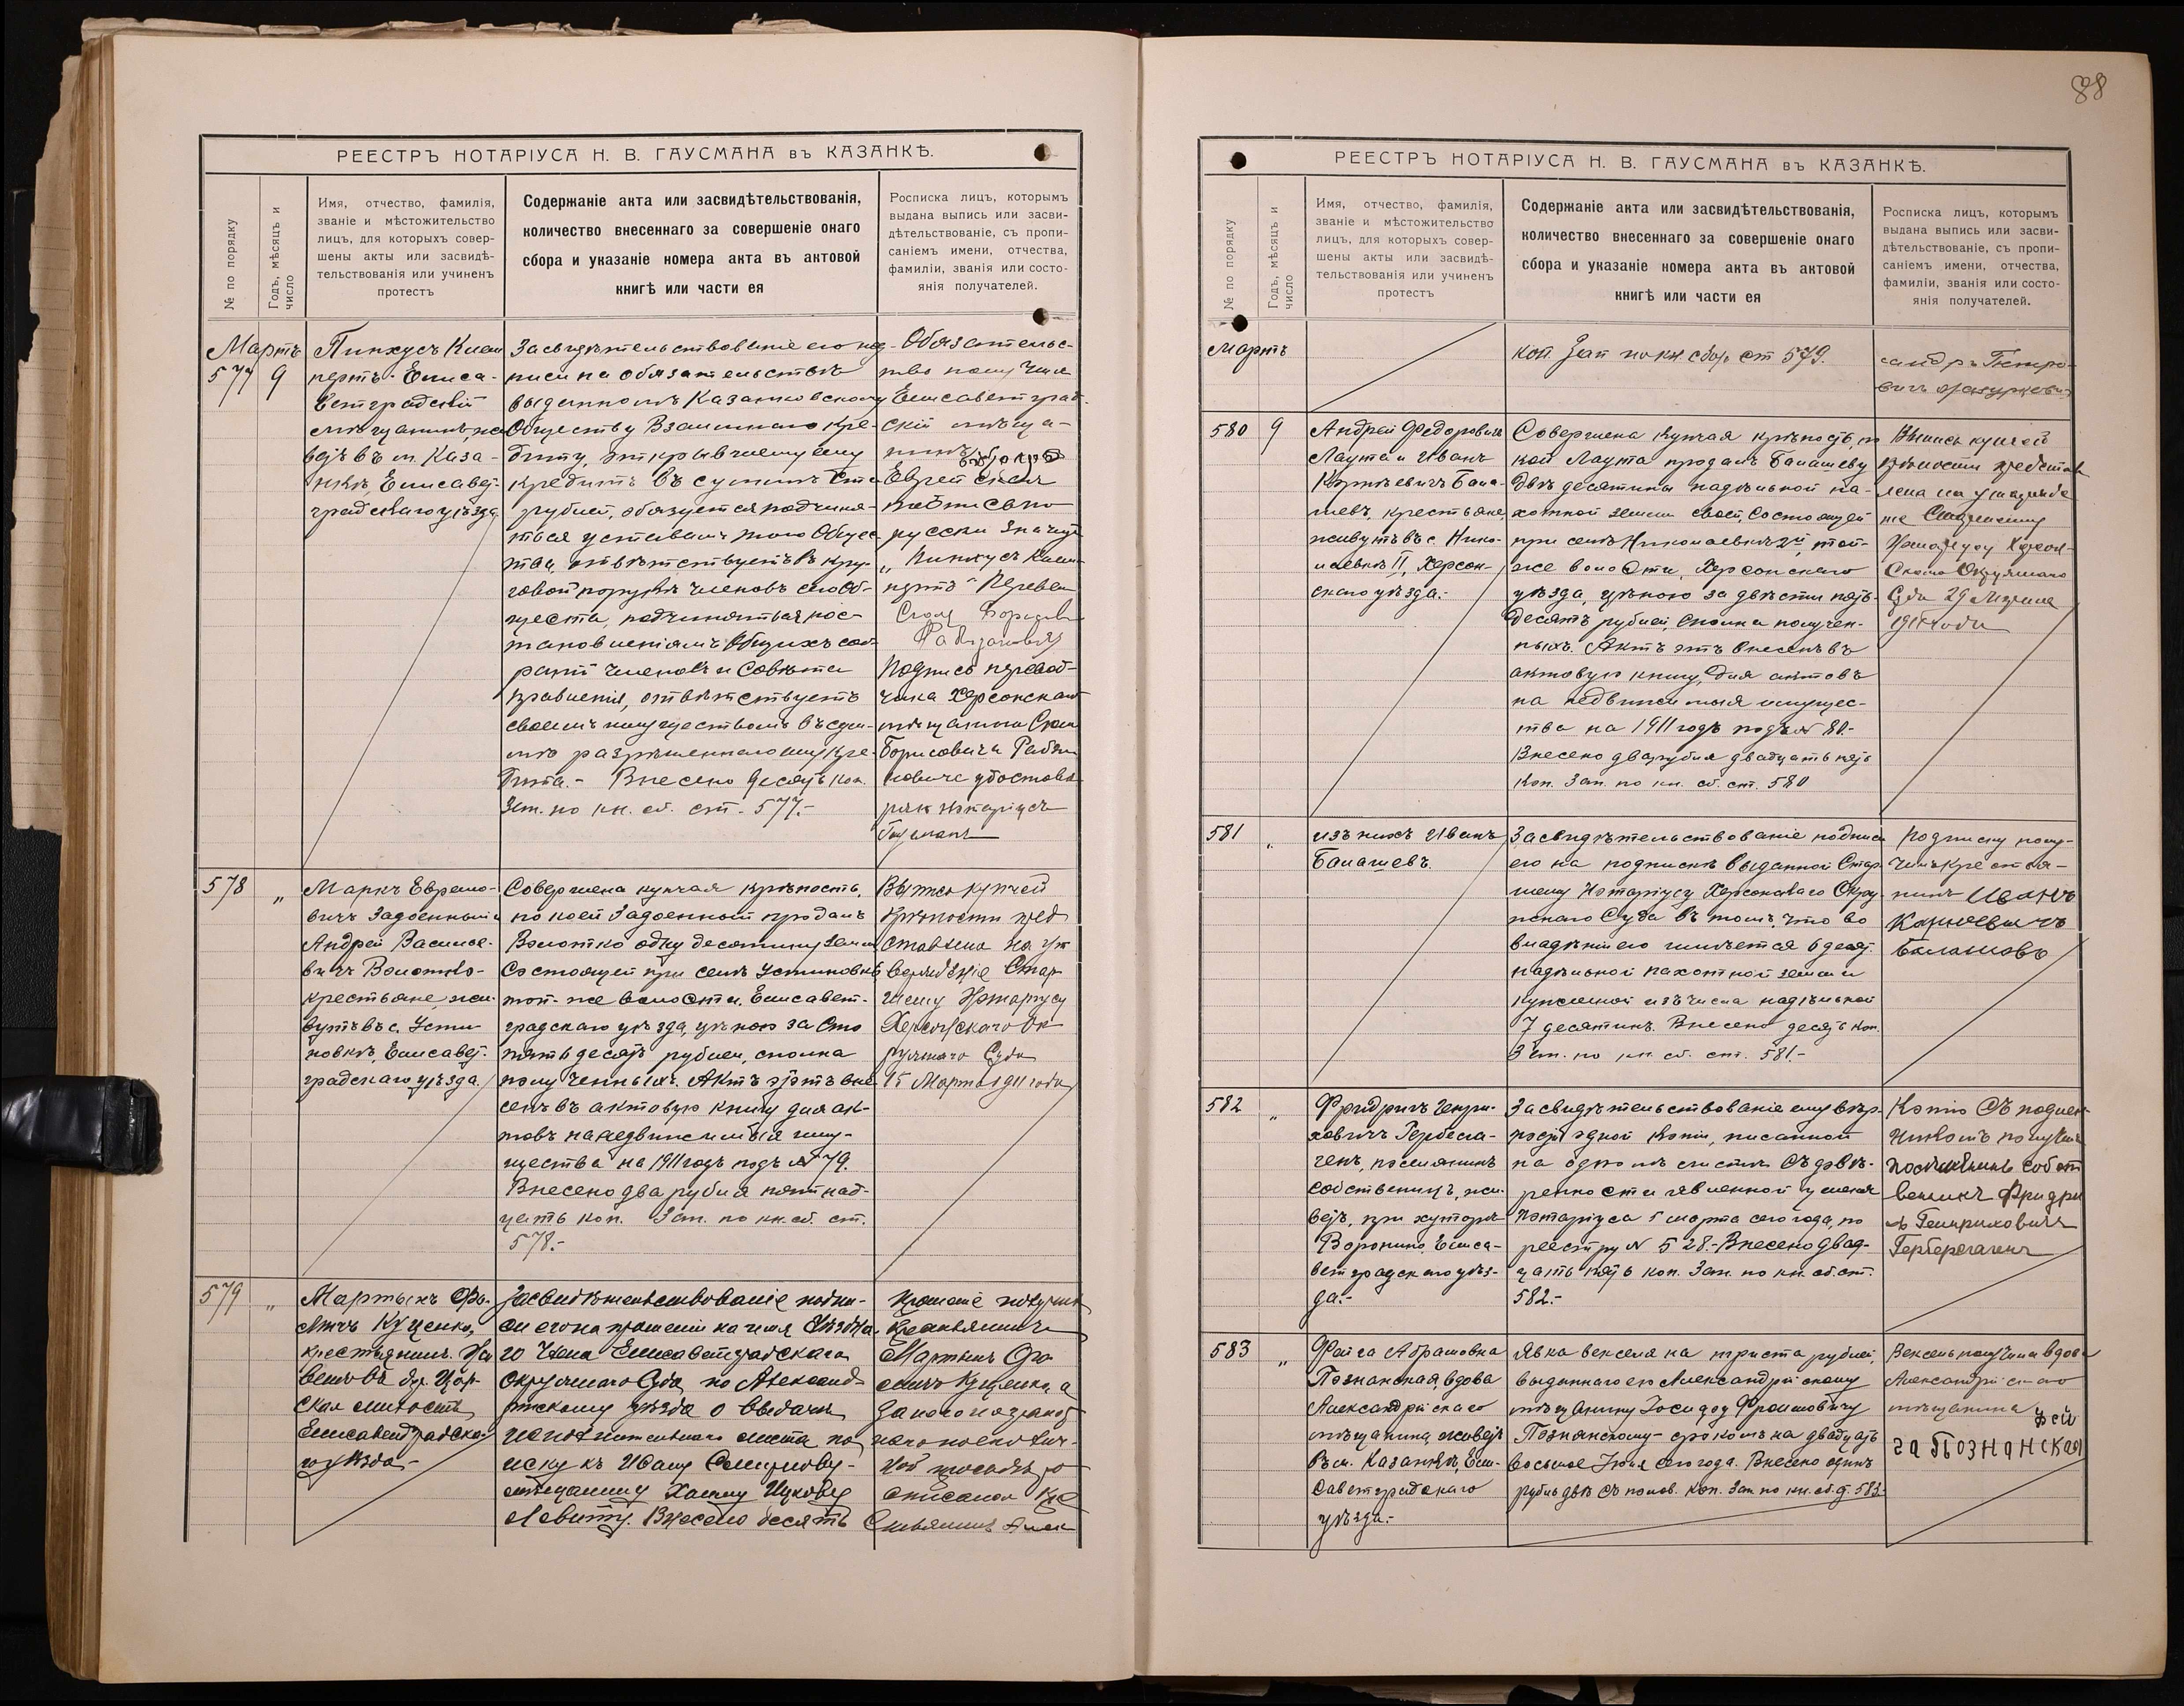 РЕЕСТРЪ НОТАРІУСА Н. В. ГАУСМАНА въ КАЗАНКѢ.
№ по порядку
Годъ, мѣсяцъ и
число
Имя, отчество, фамилія,
званіе и мѣстожительство
лицъ, для которыхъ совер-
шены акты или засвидѣ-
тельствованія или учиненъ
протестъ
Содержаніе акта или засвидѣтельствованія,
количество внесеннаго за совершеніе онаго
сбора и указаніе номера акта въ актовой
книгѣ или части ея
Росписка лицъ, которымъ
выдана выпись или засви-
дѣтельствованіе, съ пропи-
саніемъ имени, отчества,
фамиліи, званія или состо-
янія получателей.
Мартъ
577 9
Пинхусъ
Елиса-
ветградскій
мѣщанинъ, жи
ветъ въ м. Каза-
нкѣ, Елисавет-
градскаго уѣзда
Засвидѣтельствованіе его под-
писи на обязательствѣ
выданномъ Казанковскому
Обществу Взаимнаго Кре-
диту, открывшему ему
кредитъ въ суммѣ Ста
рублей, обязуется подчиня-
ться уставамъ того Общес-
тва, отвѣтствуетъ въ кру-
говой порукѣ членовъ сего Об-
щества, подчиняться пос-
тановленіямъ Общихъ соб-
раній членовъ и Совѣта
правленія, отвѣтствуетъ
своимъ имуществомъ въ сум-
мѣ разрѣшеннаго ему кре-
дита.- Внесено десять коп.
Зап. по кн. сб. ст. 577.-
Обязательс-
тво получилъ
Елисаветград-
скій мѣща-
нинъ
Еврейская
подпись по
русски значитъ
„Пинхусъ
Перевелъ
Подпись перевод-
чика Херсонскаго
мѣщанина
Борисовича Раби-
новича удостовѣ-
ряю Нотаріусъ
Гаусманъ
578 „
Маркъ Евремо-
вичъ Задоенный и
Андрей Василье-
вичъ Волотко-
крестьяне, жи-
вутъ въ с. Усти
новкѣ, Елисавет-
градскаго уѣзда.
Совершена купчая крѣпость,
по коей Задоенный продалъ
Волотко одну десятину земли
состоящей при селѣ Устиновкѣ
той-же волости, Елисавет-
градскаго уѣзда, цѣною за сто
пятьдесятъ рублей, сполна
полученныхъ. Актъ этотъ вне
сенъ въ актовую книгу для ак-
товъ на недвижимыя иму-
щества на 1911 годъ подъ № 79.
Внесено два рубля пятнад-
цать коп. Зап. по кн. сб. ст.
578.-
Выпись купчей
крѣпости пред
ставлена на ут
вержденіе Стар-
шему Нотаріусу
Херсонскаго Ок
ружнаго Суда
15 Марта 1911 года
579 „
Мартынъ Фо-
мичъ Куценко,
крестьянинъ. Жи
ветъ въ дер. Цар-
ская милость,
Елисаветградска-
го уѣзда.-
Засвидѣтельствованіе подпи-
си его на прошеніи на имя Уѣздна-
го Члена Елисаветградскаго
Окружнаго Суда по Александ-
рійскому уѣзда о выдачи
исполнительнаго листа по
иску къ Ивану Смирнову-
мѣщанину
Левиту. Внесено десять
Прошеніе получилъ
Крестьянинъ
Мартынъ Фо-
мичъ Куценко, а
за него неграмот
наго по его лич-
ной просьбѣ
росписался Кре
стьянинъ Алек
88
РЕЕСТРЪ НОТАРІУСА Н. В. ГАУСМАНА въ КАЗАНКѢ.
№ по порядку
Годъ, мѣсяцъ и
число
Имя, отчество, фамилія,
званіе и мѣстожительство
лицъ, для которыхъ совер-
шены акты или засвидѣ-
тельствованія или учиненъ
протестъ
Содержаніе акта или засвидѣтельствованія,
количество внесеннаго за совершеніе онаго
сбора и указаніе номера акта въ актовой
книгѣ или части ея
Росписка лицъ, которымъ
выдана выпись или засви-
дѣтельствованіе, съ пропи-
саніемъ имени, отчества,
фамиліи, званія или состо-
янія получателей.
Мартъ
коп. Зап по кн сбор. ст 579.
сандръ Петро-
вичъ
580 9
Андрей Федоровичъ
Лаута и Иванъ
Корнѣевичъ Бала-
шевъ, крестьяне,
живутъ въ с. Нико-
лаевкѣ II, Херсон-
скаго уѣзда.-
Совершена купчая крѣпость, по
коей Лаута продалъ Балашеву
двѣ десятины надѣльной па-
хотной земли своей, состоящей
при селѣ Николаевкѣ 2й, той-
же волости, Херсонскаго
уѣзда, цѣною за двѣсти пять-
десятъ рублей, сполна получен-
ныхъ. Актъ этъ внесенъ въ
актовую книгу для актовъ
на недвижимыя имущес-
тва на 1911 годъ подъ № 80.-
Внесено два рубля двадцать пять
коп. Зап. по кн. сб. ст. 580
Выпись купчей
крѣпости представ
лена на утвержде
ніе Старшему
Нотаріусу Херсон-
скаго Окружнаго
Суда 29 Апрѣля
1911 года
581 „
изъ нихъ Иванъ
Балашевъ
Засвидѣтельствованіе подписи
его на подпискѣ выданной Стар-
шему Нотаріусу Херсонскаго Окру-
жнаго Суда въ томъ, что во
владѣніи его имѣется 6 десят.
надѣльной пахотной земли
купленной изъ числа надѣльной
7 десятинъ. Внесено десять коп.
Зап. по кн. сб. ст. 581.-
Подписку полу-
чилъ крестья-
нинъ Иванъ
Карнѣевичъ
Балашовъ
582 „
Фридрихъ Генри-
ховичъ Гербера-
генъ, поселянинъ
собственникъ, жи-
ветъ, при хуторѣ
Воронино, Елиса-
ветградскаго уѣз-
да.-
Засвидѣтельствованіе ему вѣр-
ности одной копіи, писанной
на одномъ листѣ съ довѣ-
ренности явленной у меня
Нотаріуса 5 марта сего года, по
реестру № 528.- Внесено двад-
цать пять коп. Зап. по кн. сб. ст.
582.-
Копію съ подлин-
никомъ получилъ
поселянинъ собст
венникъ Фридри
хъ Генриховичъ
583 „
Файга Абрамовна
Познанская, вдова
Александрійскаго
мѣщанина, живетъ
въ м. Казанкѣ, Ели-
саветградскаго
уѣзда.-
Явка векселя на триста рублей,
выданнаго ею Александрійскому
мѣщанину Іосифу Фроимовичу
Познанскому- срокомъ на двадцать
восьмое Іюля сего года. Внесено одинъ
рубль двѣ съ полов. коп. Зап по кн. сб. ст. 583-
Вексель получила вдова
Александрійскаго
мѣщанина
Фей
га Познанская